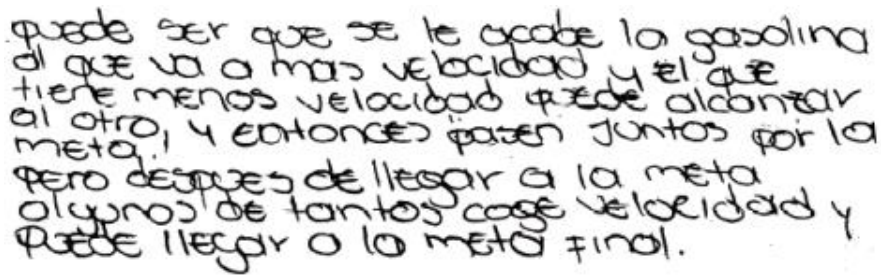 puede ser que se le acabe la gasolina
al que va a mas velocidad y el que
tiene menos velocidad puede alcanzar
al otro, y entonces pasen juntos por la
meta.
pero despues de llegar a la meta
algunos de tantos coge velocidad y
puede llegar a la meta final.